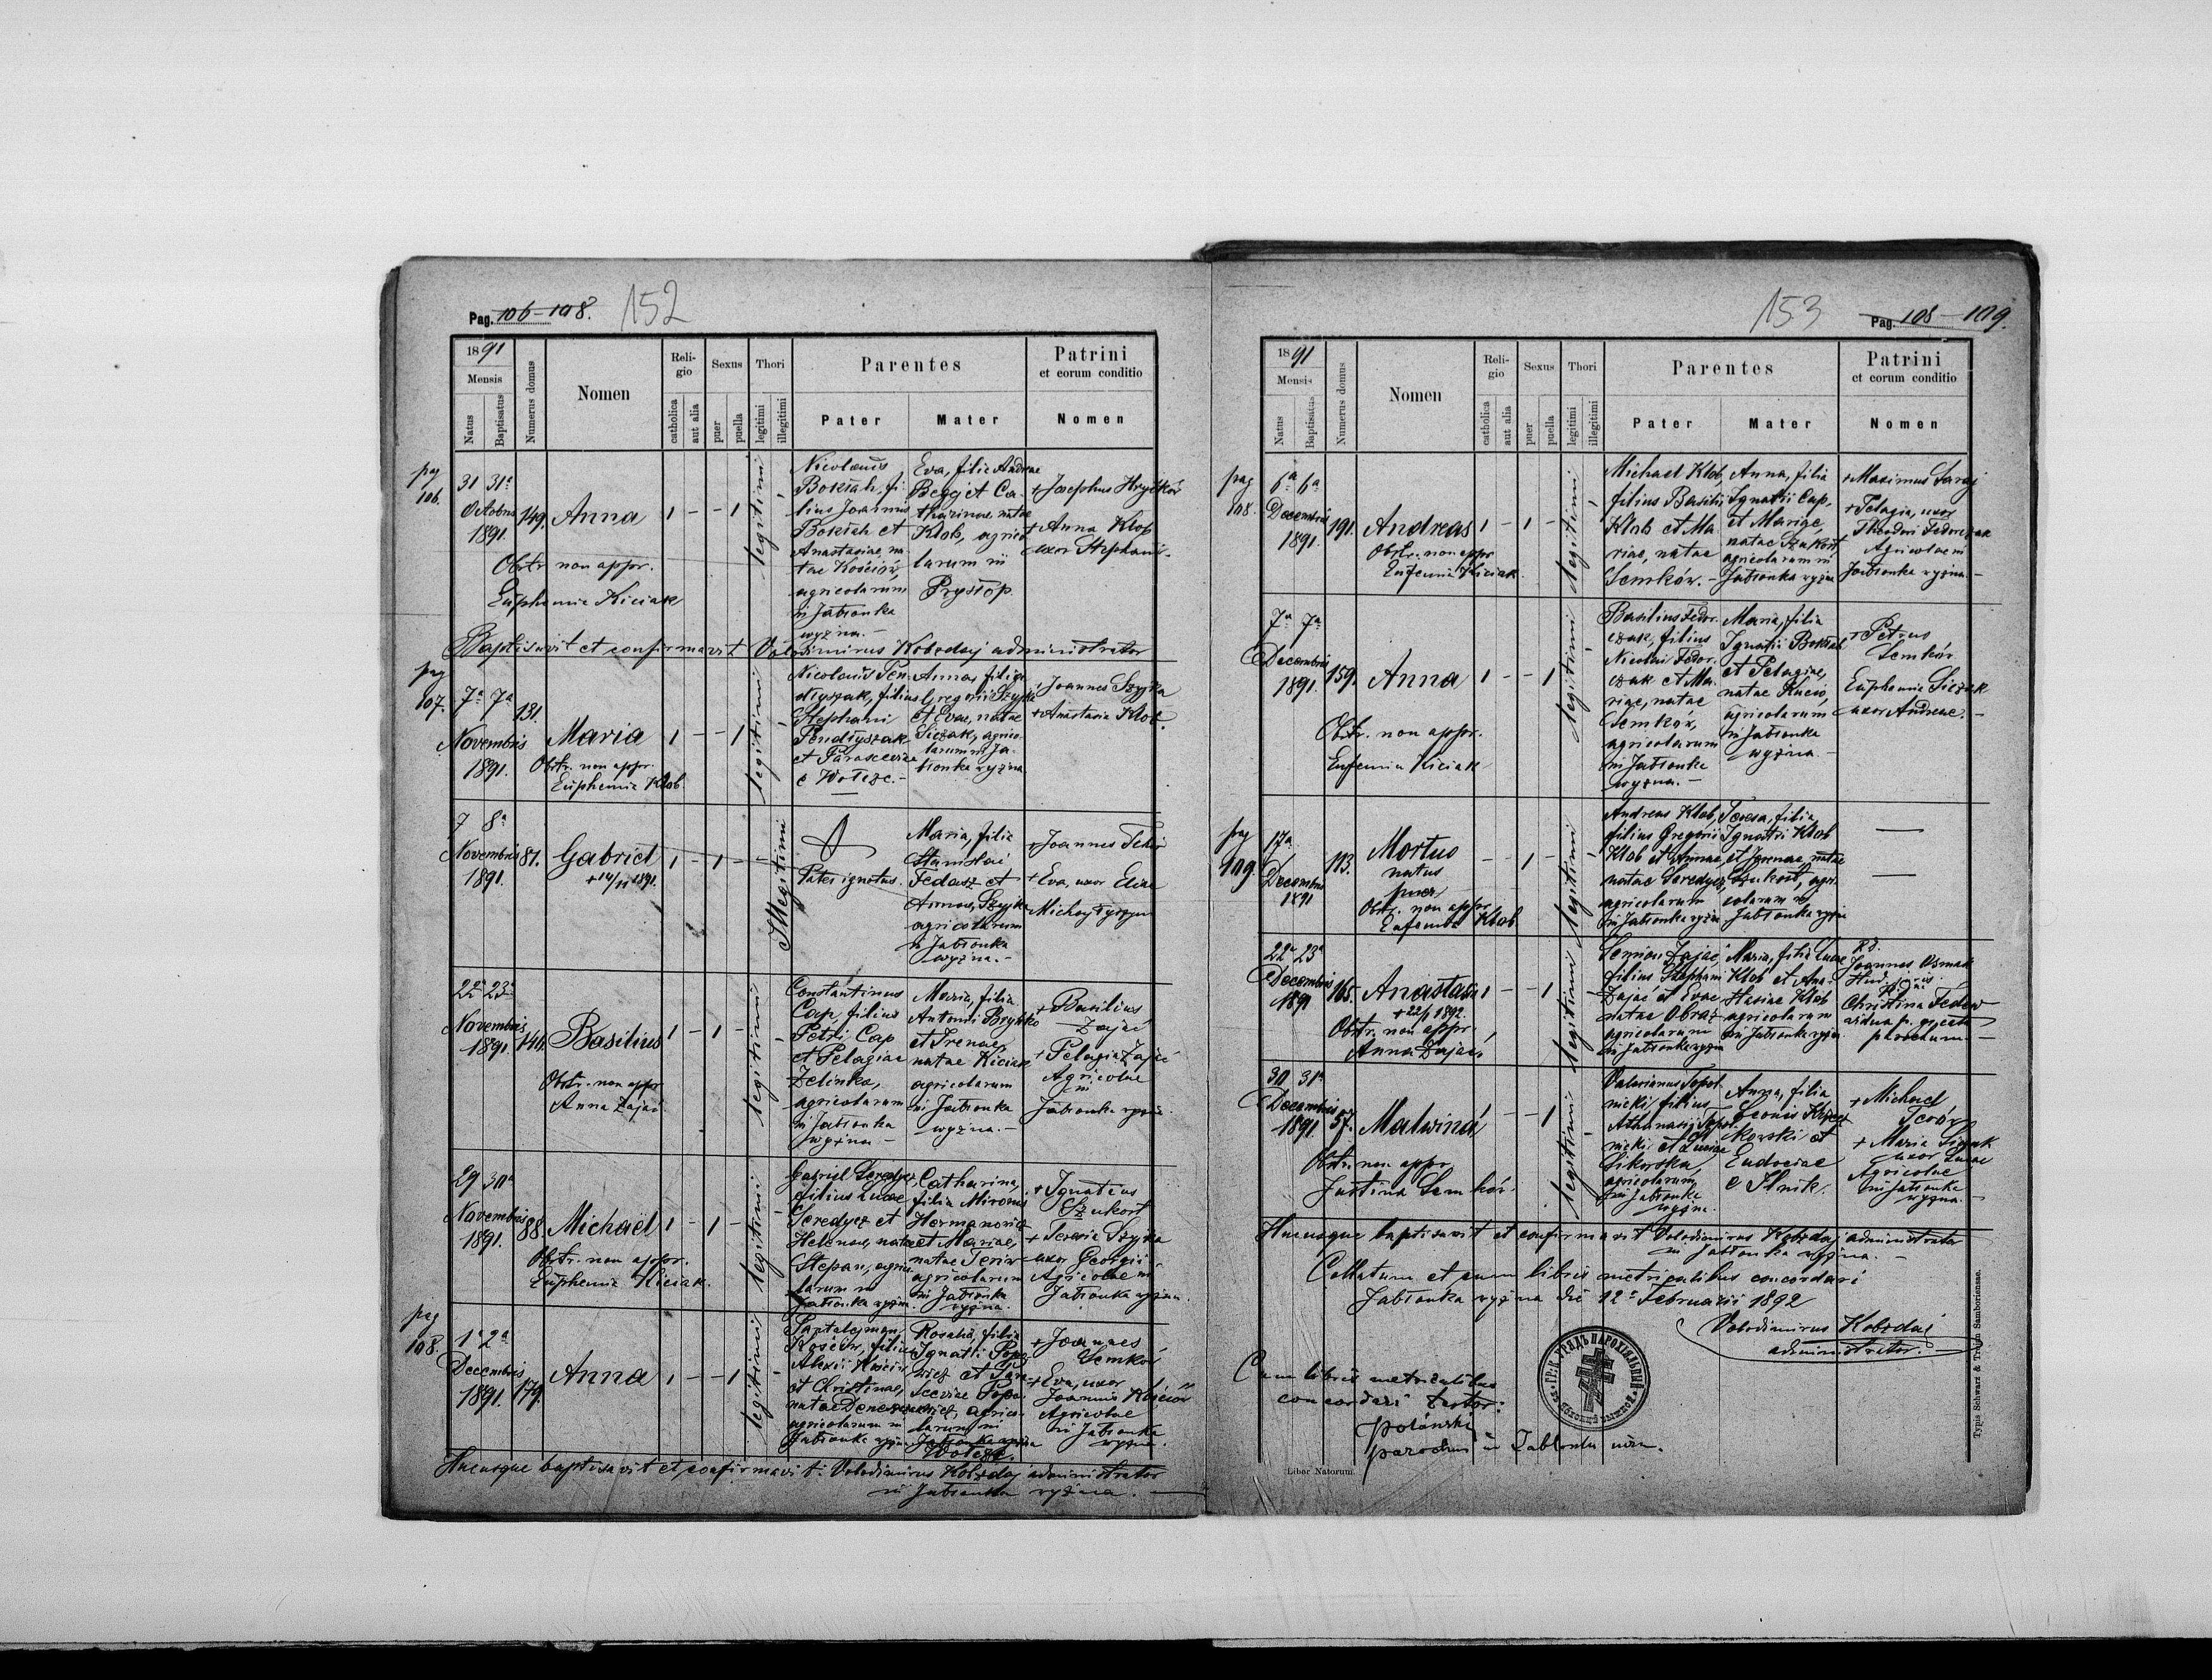 Pag. 106-108. 152
1891
Mensis
Natus
Baptisatus
Numerus domus
Nomen
Religio
catholica
aut alia
Sexus
puer
puella
Thori
legitimi
illegitimi
Parentes
Pater
Mater
Patrini
et eorum conditio
Nomen
pag
106.
31 31a
Octobris
1891.
149.
Anna
1 - - 1
legitimi
Obstr non appr.
Euphemia Kiciak
Nicolaus
Boktah, fi-
lius Joannis
Boktah et
Anastasiae, na-
tae Kościów,
agricolarum
in Jabłonka
wyżna.-
Eva, filia Andreae
Begej et Ca-
tharinae natae
Klob, agrico-
larum in
Prysłop
+ Josephus Hryckór
+ Anna Klob
uxor Stephani.
Baptisavit et confirmavit Volodimirus Kobrdaj administrator
pag
107.
7a 7a
Novembris
1891.
131.
Maria
Obstr. non appr.
Euphemia Klob.
1 - - 1
legitimi
Nicolaus Pen-
dłyszak, filius
Stephani
Pendłyszak
et Parasceviae
e Wołcze.-
Anna, filia
Gregorii Szyjka
et Evae, natae
Siczak, agrico-
larum in Ja-
błonka ryżna
+ Joannes Szyjka
+ Anastasia Klob.
7 8a
Novembris
1891.
81.
Gabriel
+ 14/11 1891.
1 - 1 -
Illegitimi
Pater ignotus.
Maria, filia
Stanislai
Fedasz et
Annae, Szyjka
agricolarum
in Jabłonka
wyżna.-
+ Joannes
+ Eva, uxor Eliae
22a 23a
Novembris
1891.
146.
Basilius
Obstr. non appr
Anna Zajać.
1 - 1 -
legitimi
Constantinus
Cap, filius
Petri Cap
et Pelagiae
Zelinka,
agricolarum
in Jabłonka
wyżna -
Maria, filia
Antonii
et Irenae,
natae Kiciak
agricolarum
in Jabłonka
wyżna.-
+ Basilius
Zajać
+ Pelagia Zajać
Agricolae
in
Jabłonka ryżna.
29 30a
Novembris
1891.
88.
Michaël
Obstr. non appr.
Euphemia Kiciak.
1 - 1 -
legitimi
Gabriel Seredycz,
filius Lucae
Seredycz et
Helenae, natae
Stepan, agrico-
larum in
Jabłonka ryżna.
Catharina,
filia Mironis
Hermanovicz
et Mariae,
natae
agricolarum
in Jabłonka
ryżna.
+ Ignatius
Szukost
+ Teresia Szyjka
uxor Georgii
Agricolae in
Jabłonka ryżna.
pag
108.
1a 2a
Decembris
1891.
179.
Anna
1 - - 1
legitimi
Pantalejmon
Kościów, filius
Alexii Kościów
et Christinae,
natae
agricolarum in
Jabłonka ryżna
Rosalia, filia
Ignatii
et Para-
sceviae
agrico-
larum in
Jabłonka ryżna
Wołcze.
+ Joannes
Semków
+ Eva, uxor
Joannis Kościów
Agricolae
in Jabłonka
wyżna.
Hucusque baptisavit et confirmavit: Volodimirus Kobrdaj administrator
in Jabłonka ryżna.
153 Pag. 108-109.
1891
Mensis
Natus
Baptisatus
Numerus domus
Nomen
Religio
catholica
aut alia
Sexus
puer
puella
Thori
legitimi
illegitimi
Parentes
Pater
Mater
Patrini
et eorum conditio
Nomen
pag
108.
6a 6a
Decembris
1891.
191.
Andreas
Obstr. non appr
Eufemia Kiciak.
1 - 1 -
legitimi
Michael Klob,
filius Basilii
Klob et Ma-
riae, natae
Semków.-
Anna, filia
Ignatii Cap,
et Mariae,
natae Szukost
agricolarum in
Jabłonka ryżna
+ Maximus
+ Pelagia, uxor
Theodori Fedorczak
Agricolae in
Jabłonka ryżna.-
7a 7a
Decembris
1891.
159.
Anna
Obstr. non appr.
Eufemia Kiciak
1 - - 1
legitimi
Basilius Fedor-
czak, filius
Nicolai Fedor-
czak et Ma-
riae, natae
Semków,
agricolarum
in Jabłonka
wyżna.-
Maria, filia
Ignatii Boktah
et Pelagiae,
natae
agricolarum
in Jabłonka
wyżna -
+ Petrus
Semków
Euphemia Siczak
uxor Andreae.-
pag
109.
17a
Decembris
1891
113.
Mortuo
natus
puer
Obstr. non appr.
Eufemia Klob
- - 1 -
legitimi
Andreas Klob,
filius Gregorii
Klob et Annae,
natae Seredycz,
agricolarum
in Jabłonka ryżna
Teresa, filia
Ignatii Klob
et Irenae, natae
Szukost, agri-
colarum in
Jabłonka ryżna
22a 23a
Decembris
1891
165.
Anastasia
+ 22/1 1892.
Obstr. non appr.
Anna Zajać.
1 - - 1
legitimi
Semion Zajać,
filius Stephani
Zajać et Evae
natae Obraz
agricolarum
in Jabłonka ryżna
Maria, filia Lucae
Klob et Ana-
stasiae Klob
agricolarum
in Jabłonka ryżna.
Joannes Osmak
Christina
vidua p. gr. cath
parochum.
30 31a
Decembris
1891.
57.
Malwina
Obstr. non appr
Justina Semków.
- - 1
legitimi
Valerianus Topol-
nicki, filius
Athanasii Topol-
nicki et Luciae
Sikorska,
agricolarum
in Jabłonka
wyżna.
Anna, filia
Leonis
et
Eudociae
e Ilnik.
+ Michael
+ Maria Siczak
uxor Lucae
Agricolae
in Jabłonka
wyżna.
Hucusque baptisavit et confirmavit Volodimirus Kobrdaj administrator
in Jabłonka ryżna.-
Collatum et cum libris metricalibus concordari
Jabłonka ryżna die 12a Februarii 1892
Volodimirus Kobrdaj
administrator.-
Cum libris metricalibus
concordari testor:
Polański
parochus in Jabłonka
ГР. К. УРЯДЪ ПАРОХІЯЛЬНЫЙ
Liber Natorum.
Typis Schwarz & Trojan Samboriensse.